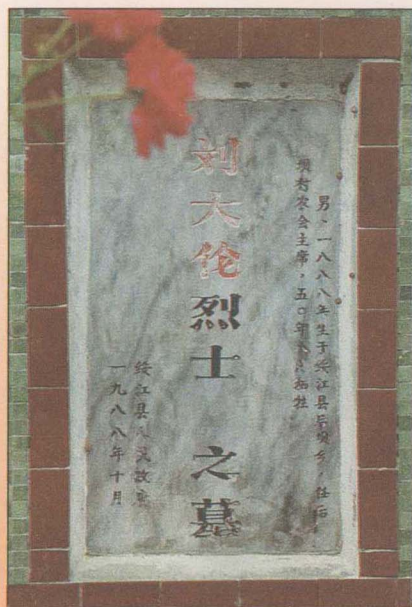 男，一八八八年生于绥江县后坝乡，任后
坝村农会主席，五〇年 月牺牲
刘大伦烈士 之墓
绥江县人民政府
一九八八年十月